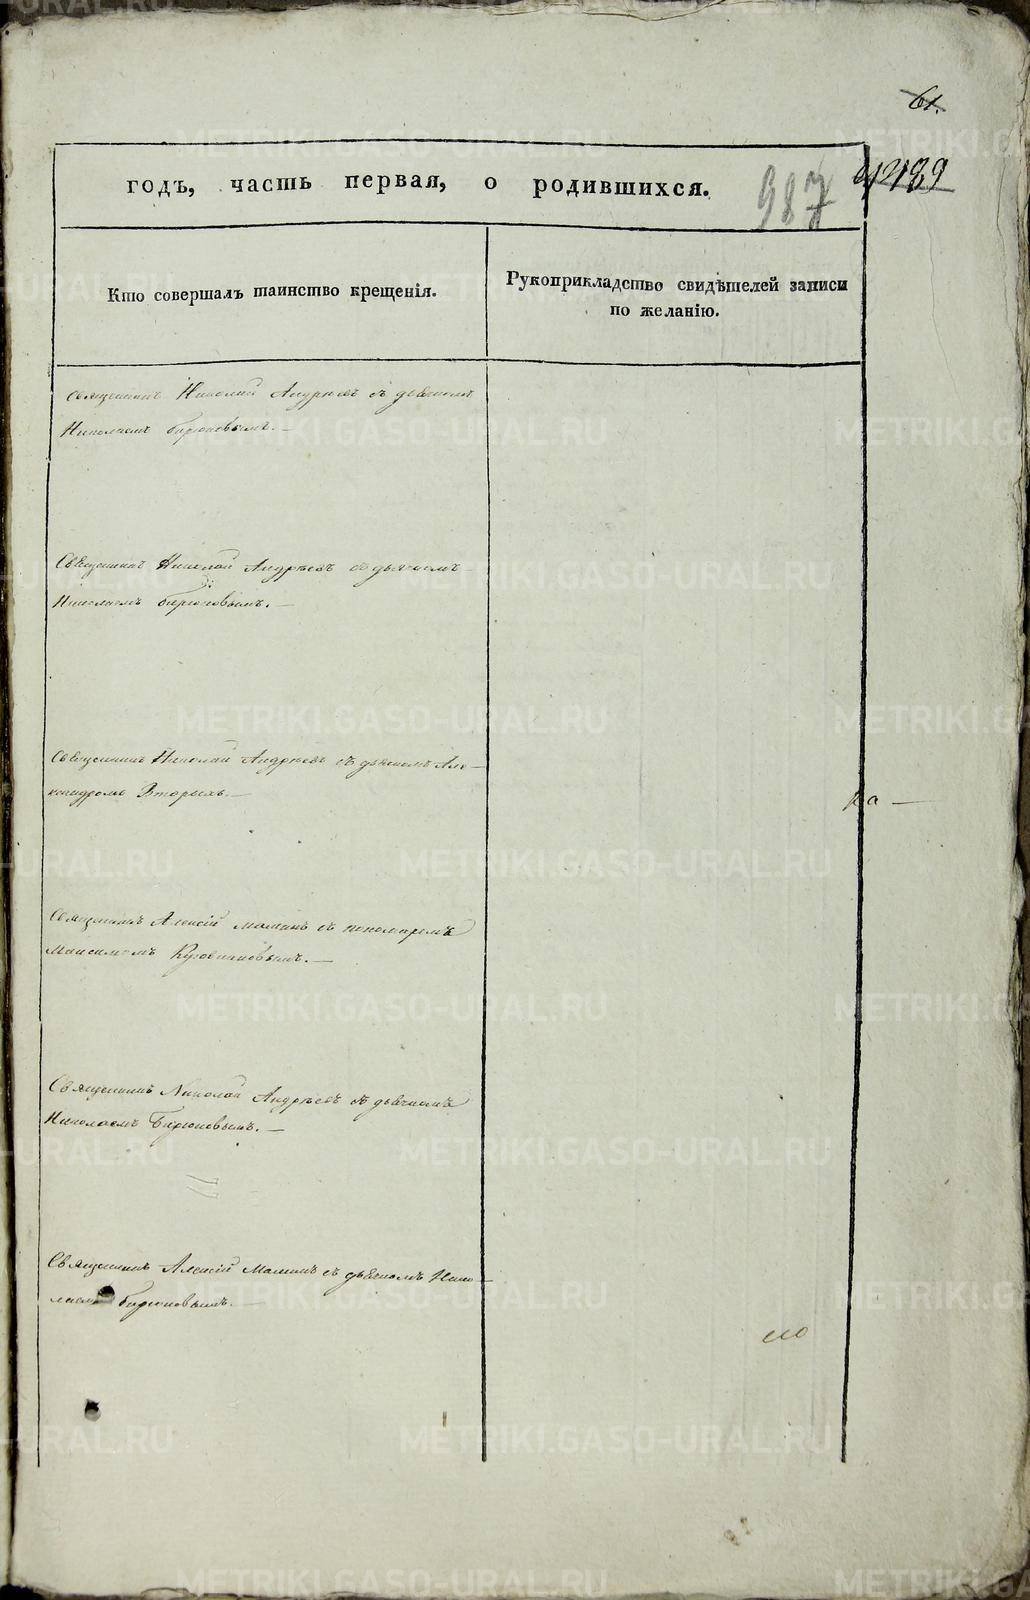 61.
годъ, часть первая, о родившихся.
987
Кто совершалъ таинство крещенія.
Рукоприкладство свидѣтелей записи
по желанію.
Священникъ Николай Андреевъ съ дьячкомъ
Николаемъ Бирюковымъ.—
Священникъ Николай Андреевъ съ дьячкомъ
Николаемъ Бирюковымъ.—
Священникъ Николай Андреевъ съ дьячкомъ Але-
ксандромъ Вторыхъ.—
Священникъ Алексій Маминъ съ пономаремъ
Максимомъ
Священникъ Николай Андреевъ съ дьячкомъ
Николаемъ Бирюковымъ.—
Священникъ Алексій Маминъ съ дьячкомъ Нико-
лаемъ Бирюковымъ.—
METRIKI.GASO-URAL.RU